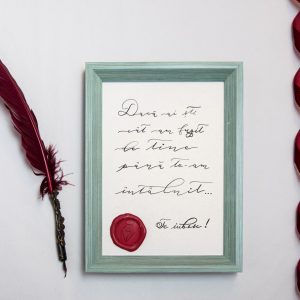 Dacă ai ști
cât am fugit
de tine
până te-am
întâlnit...
Te iubesc!